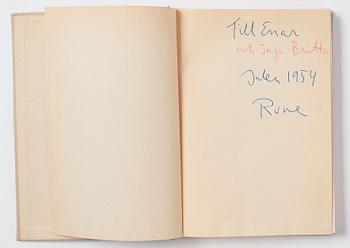 Till Einar
och Inga-Britta
Julen 1954
Rune